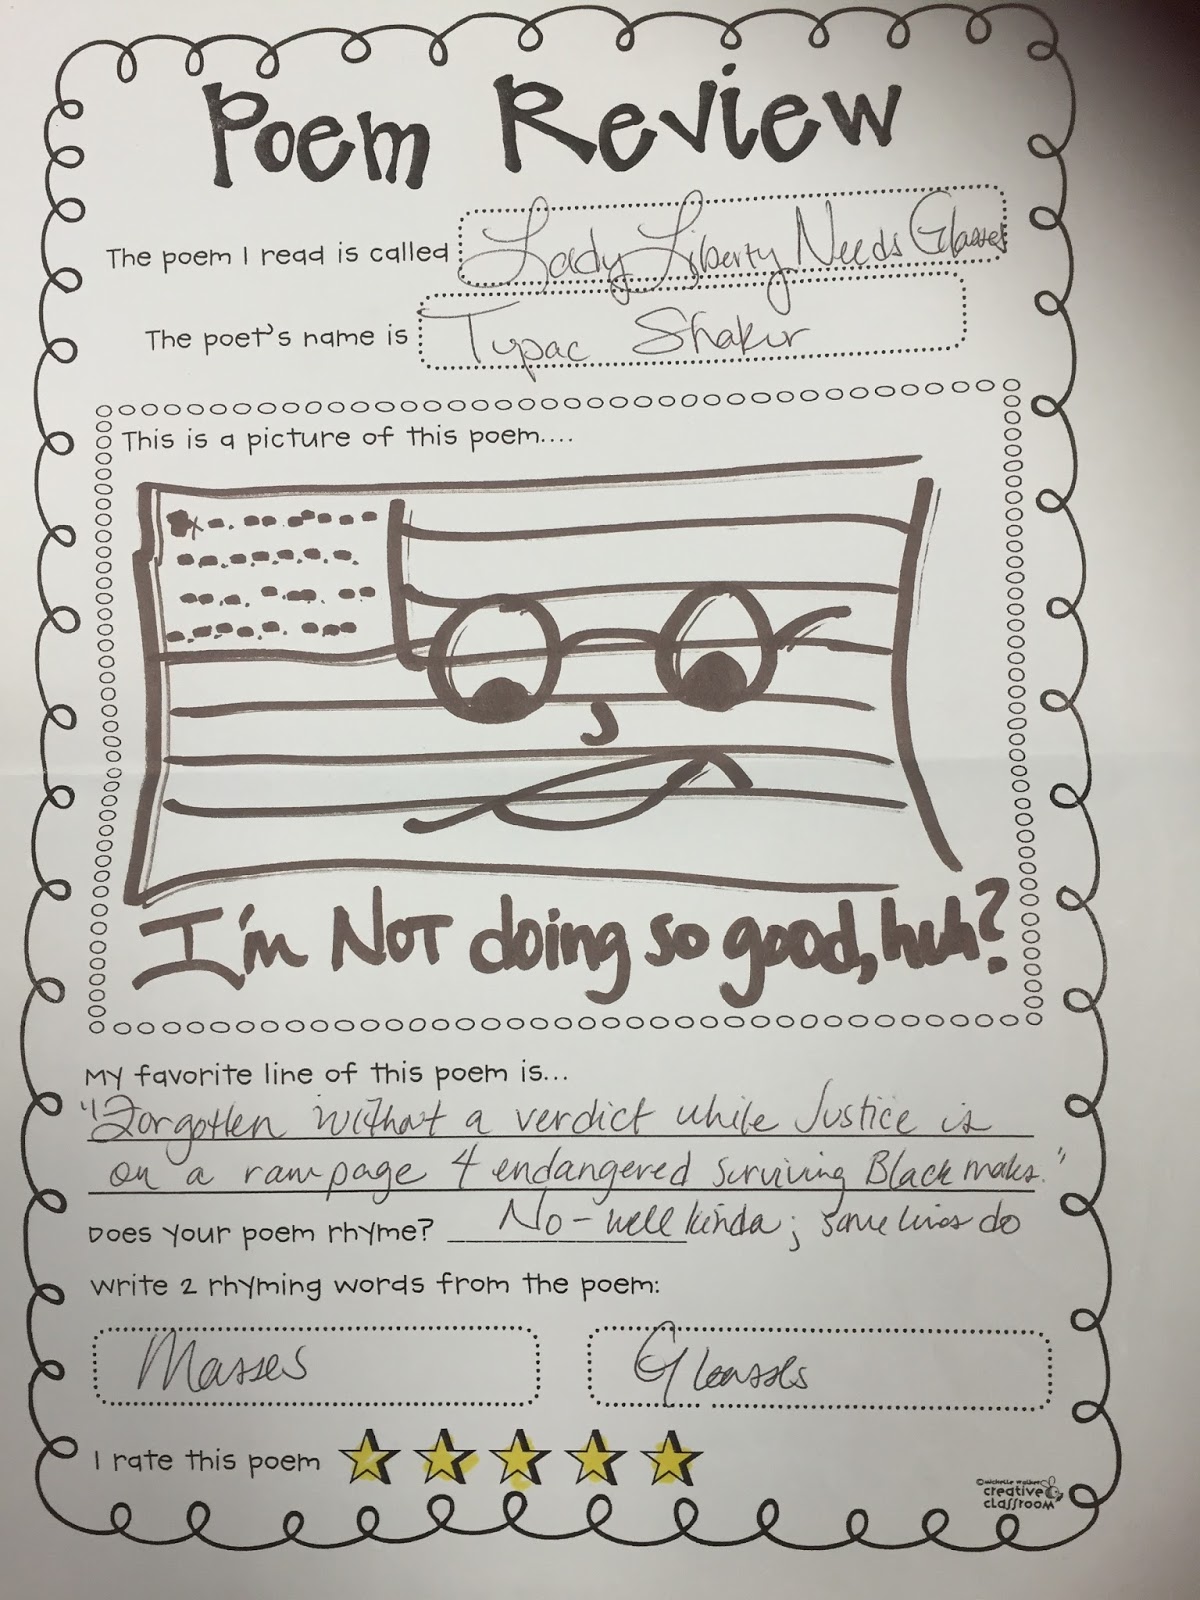 Poem Review
The poem I read is called Lady Liberty Needs Glasses
The poet's name is Tupac Shakur
This is a picture of this poem....
I'm NOT doing so good, huh?
My favorite line of this poem is...
"Forgotten without a verdict while Justice is
on a rampage 4 endangered surviving Black males."
Does your poem rhyme? No - well kinda; some lines do
Write 2 rhyming words from the poem:
Masses Glasses
I rate this poem
©Michelle Walker
Creative
Classroom